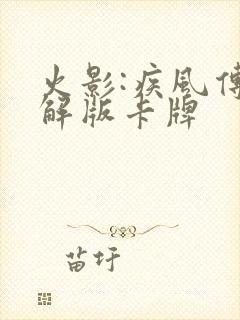 火影:疾風傳
解版卡牌
苗圩